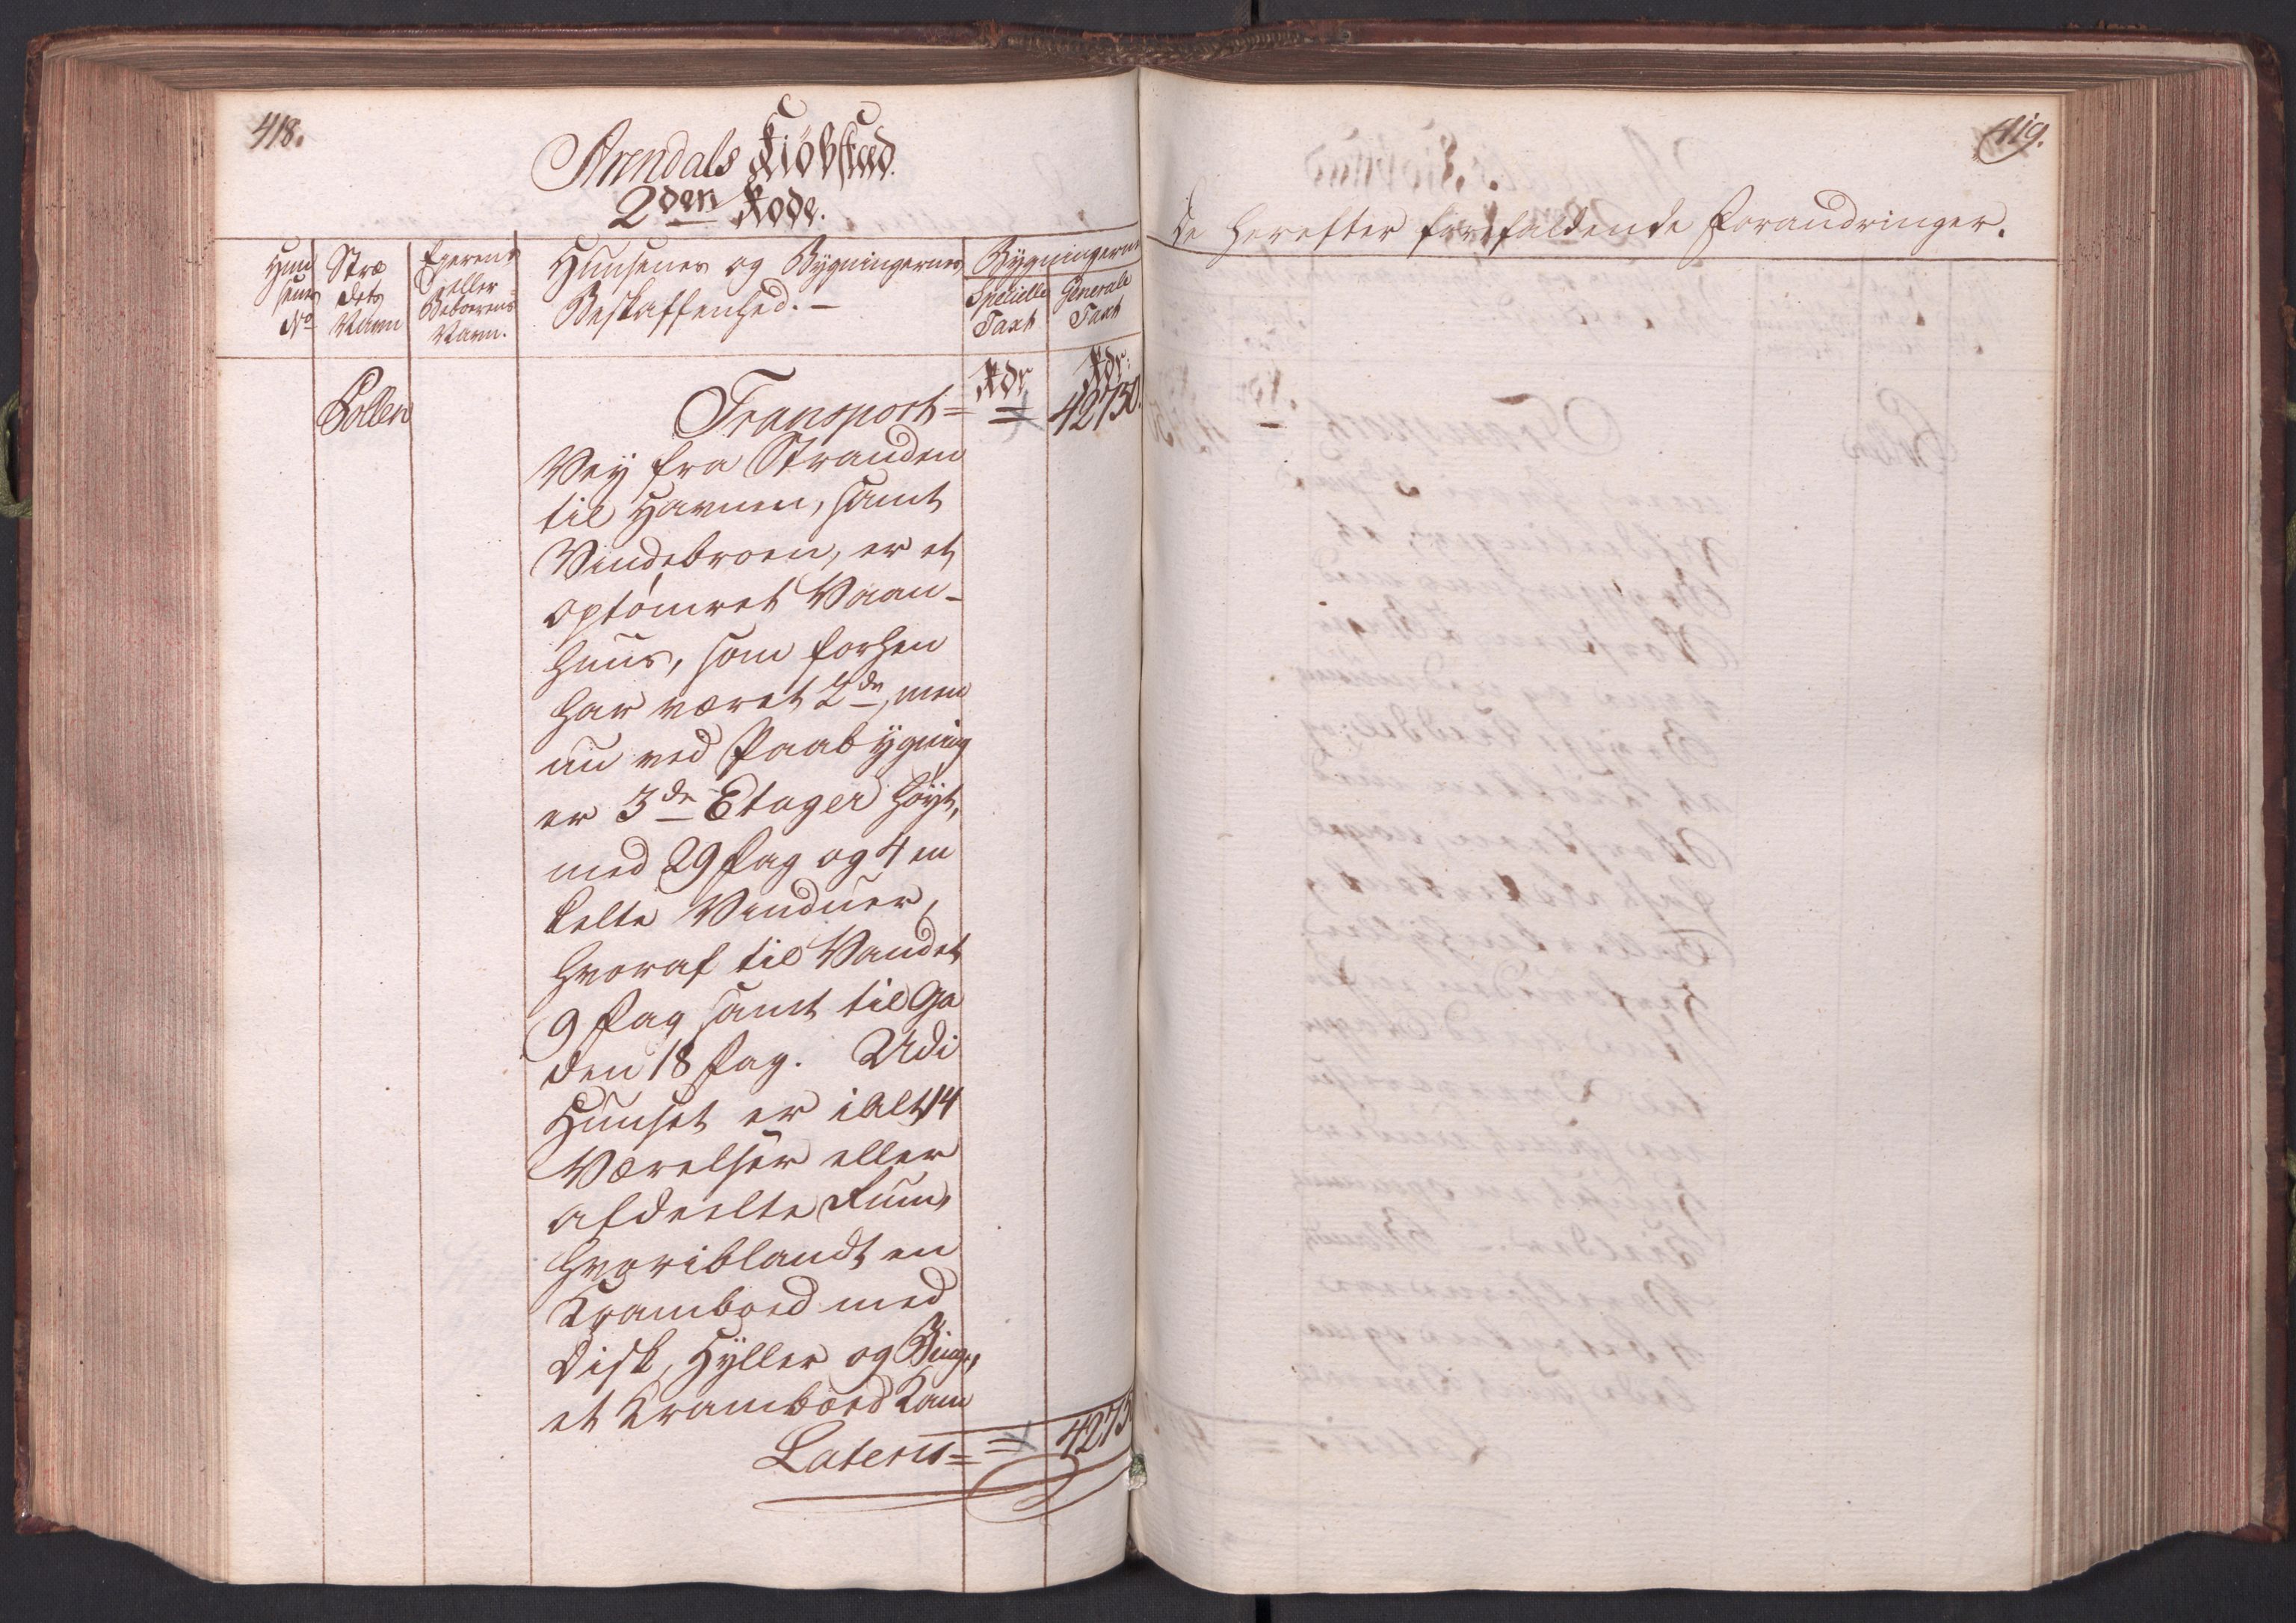 418.
Arendals Kiöbstæd.
2den Rode.
Huu
senes
No
Stræ
dets
Navn
Eyerens
eller
Beboerens
Navn.
Huusenes og Bygningernes
Beskaffenhed. –
Bygningernes
Specielle
Taxt
Generale
Taxt
Rdr
Rdr:
Pollen
Transport = = 42750.
Vey fra Stranden
til Havnen, samt
Vindebroen, er et
optömret Vaan-
huus, som forhen
har været 2de, men
nu ved Paabygning
er 3de Etager höyt,
med 29 Fag og 4 en
kelte Vinduer,
hvoraf til Vandet
9 Fag samt til Ga
den 18 Fag. Udi
Huuset er i alt 14
Værelser eller
afdeelte Rum,
hvoriblandt en
Kramboed med
Disk, Hyller og Binge,
et Kramboed Kam
Lateris = = 4275
419.
De herefter forefaldende Forandringer.